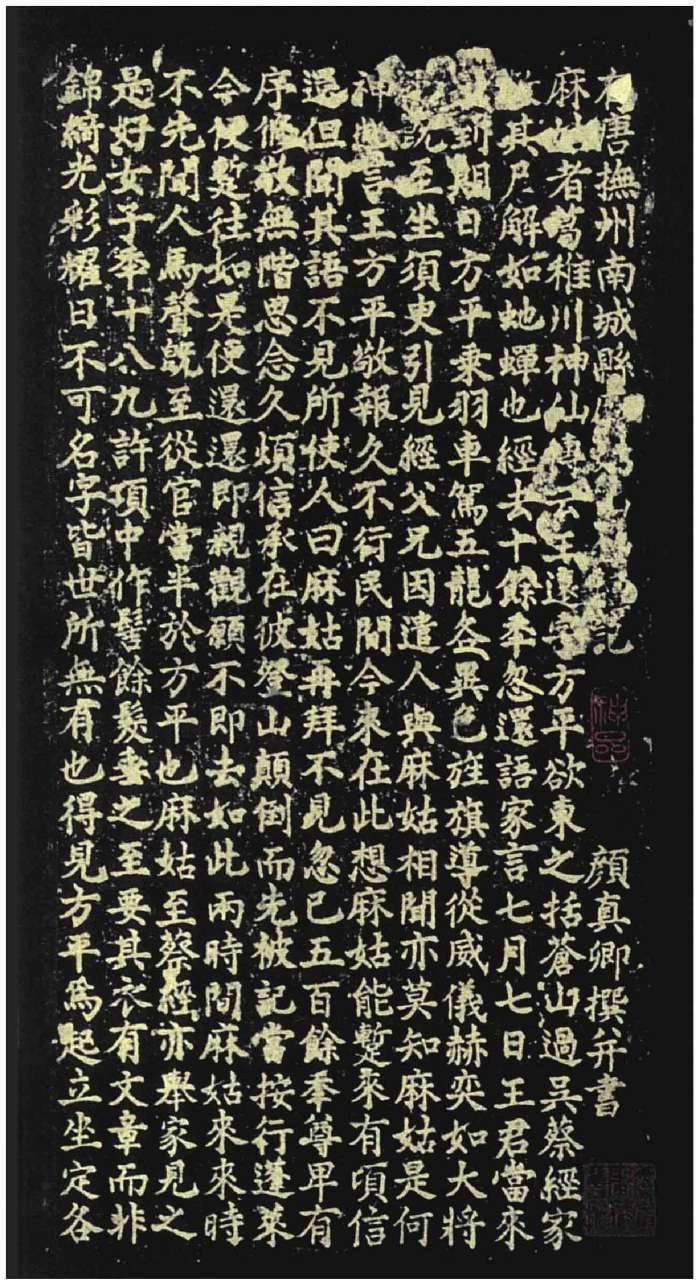 有唐撫州南城縣記 顏真卿撰并書
麻姑者葛稚川神仙傳云王遠字方平欲東之括蒼山過吳蔡經家
教其尸解如虵蟬也經去十餘秊忽還語家言七月七日王君當來
到期日方平乘羽車駕五龍各異色旌旗導從威儀赫奕如大將
既至坐須臾引見經父兄因遣人與麻姑相聞亦莫知麻姑是何
神也言王方平敬報久不行民間今來在此想麻姑能蹔來有頃信
還但聞其語不見所使人曰麻姑再拜不見忽已五百餘秊尊卑有
序修敬無階思念久煩信承在彼登山顛倒而先被記當按行蓬萊
今便蹔往如是便還還即親觀願不即去如此兩時間麻姑來來時
不先聞人馬聲既至從官當半於方平也麻姑至蔡經亦舉家見之
是好女子秊十八九許頂中作髻餘髮垂之至要其衣有文章而非
錦綺光彩耀日不可名字皆世所無有也得見方平為起立坐定各